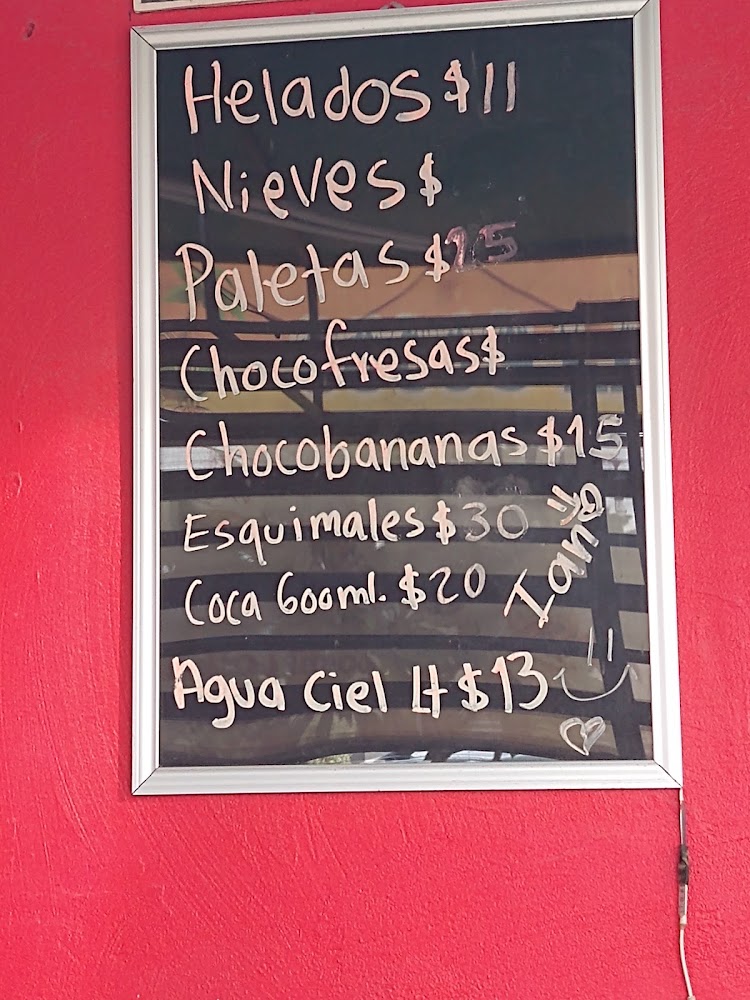 Helados $11
Nieves $
Paletas $25
Chocofresas $
Chocobananas $15
Esquimales $30
Coca 600ml. $20
Agua Ciel Lt $13